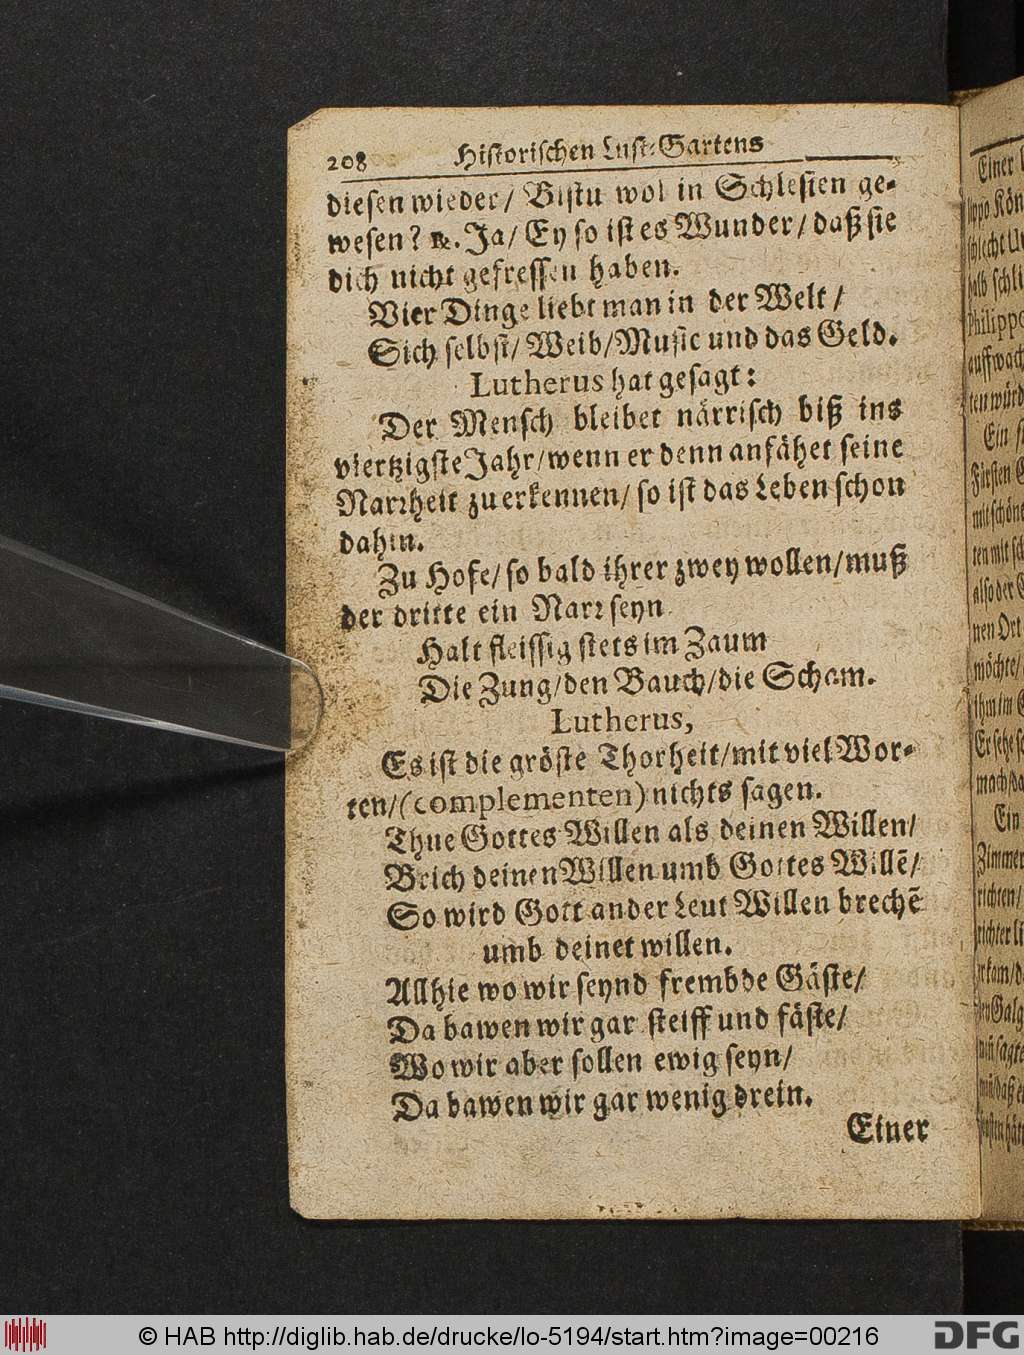 208 Historischen Lust-Gartens
diesen wieder/ Bistu wol in Schlesien ge-
wesen? &c. Ja/ Ey so ist es Wunder/ daß sie
dich nicht gefressen haben.
Vier Dinge liebt man in der Welt/
Sich selbst/ Weib/Music und das Geld.
Lutherus hat gesagt:
Der Mensch bleibet närrisch biß ins
viertzigste Jahr/wenn er denn anfähet seine
Narrheit zu erkennen/ so ist das Leben schon
dahin.
Zu Hofe/ so bald ihrer zwey wollen/muß
der dritte ein Narr seyn
Halt fleissig stets im Zaum
Die Zung/den Bauch/die Scham.
Lutherus,
Es ist die gröste Thorheit/mit viel Wor-
ten/(complementen) nichts sagen.
Thue Gottes Willen als deinen Willen/
Brich deinen Willen umb Gottes Willẽ/
So wird Gott ander Leut Willen brechẽ
umb deinet willen.
Allhie wo wir seynd frembde Gäste/
Da bawen wir gar steiff und fäste/
Wo wir aber sollen ewig seyn/
Da bawen wir gar wenig drein.
Einer
Einer
lippo Kön
schlecht
halb schli
Philippo
auffwach
ten würd
Ein
Fürsten
mit schöne
ten mit
also der
nen Ort
möchte/
ihm im
Er sehe
mach/da
Ein
Zimmer
richten/
richter
kam/
Galg
sagte
daß
hät
© HAB http://diglib.hab.de/drucke/lo-5194/start.htm?image=00216
DFG